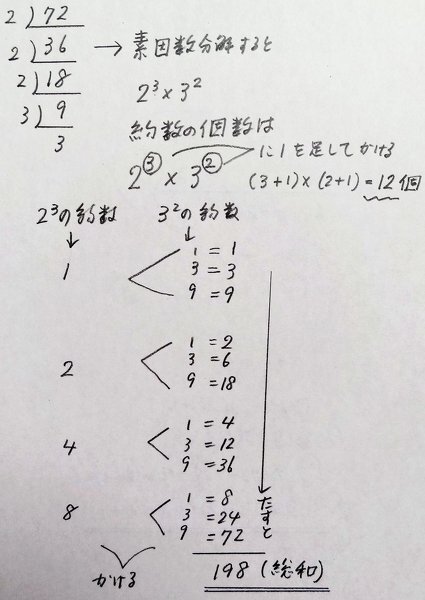 2)72
2)36 → 素因数分解すると
2)18
3)9
3
2³×3²
約数の個数は
2³×3² に1を足してかける
(3+1)×(2+1)=12個
2³の約数 3²の約数
↓ ↓
1
1=1
3=3
9=9
2
1=2
3=6
9=18
4
1=4
3=12
9=36
8
1=8
3=24
9=72
たすと
かける
198(総和)